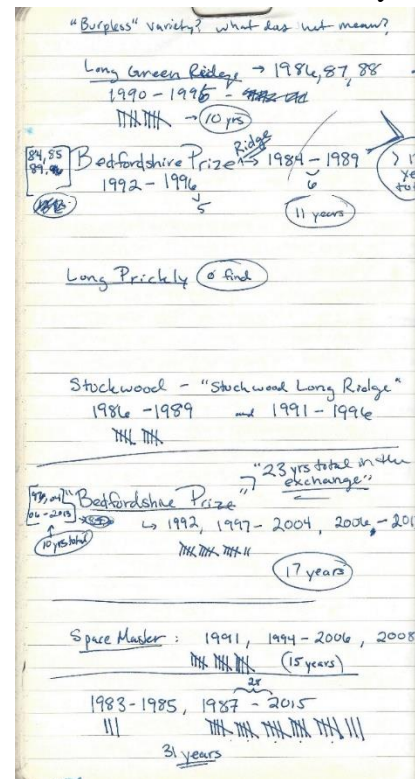 "Burpless" variety? what does that mean?
Long Green Ridge → 1986, 87, 88
1990 - 1995 -
→ 10 yrs
84, 85
89, 96
Bedfordshire Prize Ridge → 1984 - 1989
1992 - 1996
6
5
11 years
Long Prickly ø find
Stockwood - "Stockwood Long Ridge"
1986 - 1989 and 1991 - 1996
"23 yrs total in the
exchange"
"Bedfordshire Prize"
06 - 2013
10 yrs total
↳ 1992, 1997 - 2004, 2006, - 201
17 years
Space Master : 1991, 1994 - 2006, 2008
(15 years)
28
1983 - 1985, 1987 - 2015
31 years